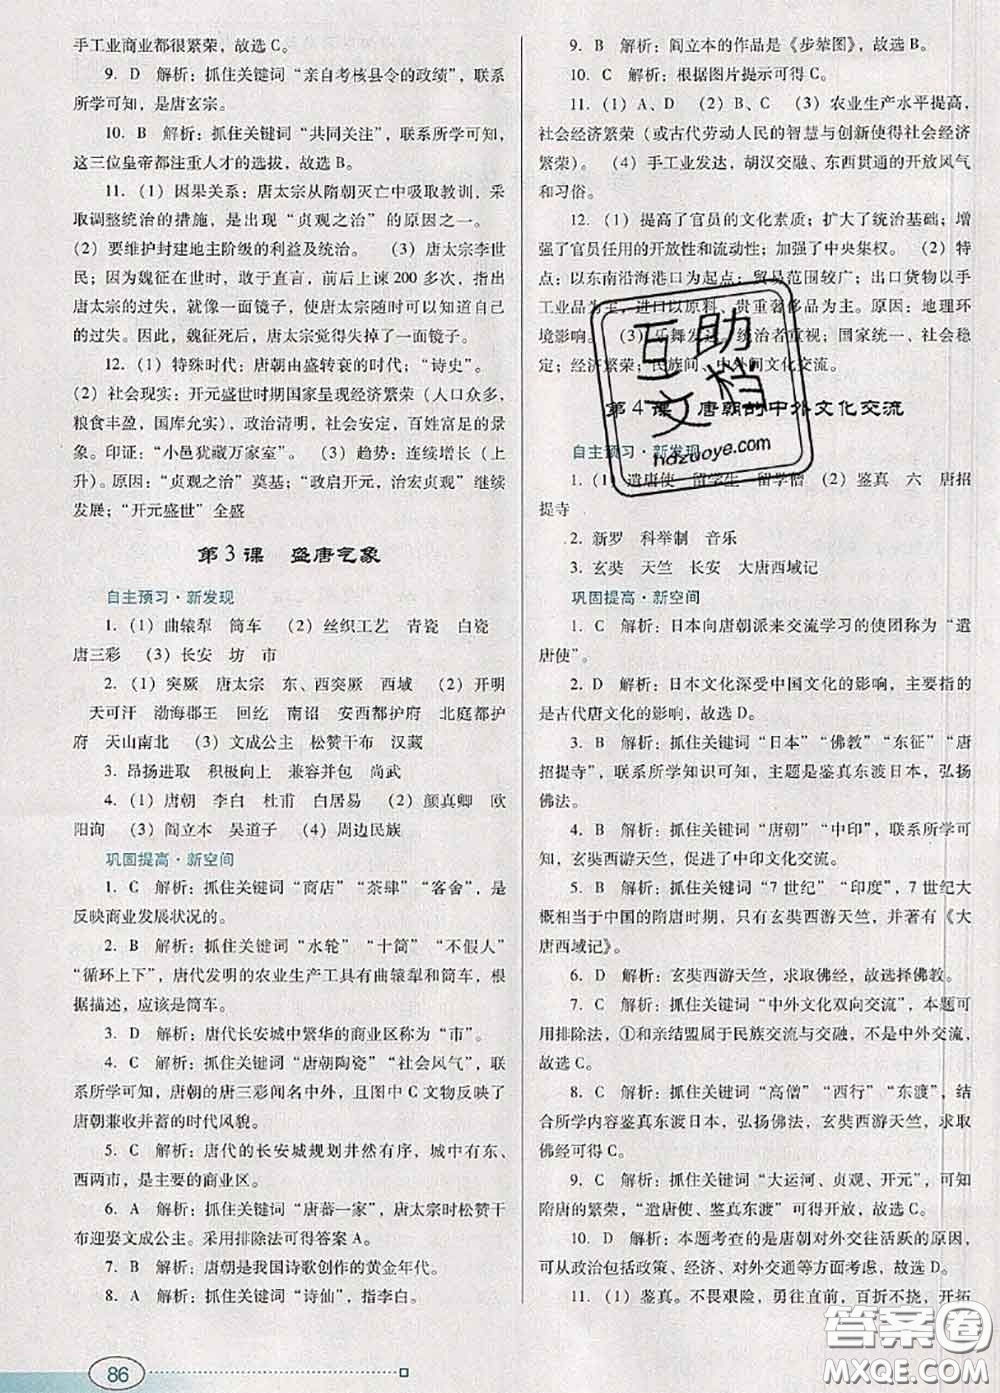 手工业商业都很繁荣，故选C。
9. D 解析：抓住关键词“亲自考核县令的政绩”，联系
所学可知，是唐玄宗。
10. B 解析：抓住关键词“共同关注”，联系所学可知，
这三位皇帝都注重人才的选拔，故选B。
11.（1）因果关系：唐太宗从隋朝灭亡中吸取教训，采
取调整统治的措施，是出现“贞观之治”的原因之一。
（2）要维护封建地主阶级的利益及统治。 （3）唐太宗李世
民；因为魏征在世时，敢于直言，前后上谏200多次，指出
唐太宗的过失，就像一面镜子，使唐太宗能认识到自己的
过失。因此，魏征死后，唐太宗觉得失掉了一面镜子。
12.（1）特殊时代：唐朝由盛转衰的时代；“诗史”。
（2）社会现实：开元盛世时期国家呈现经济繁荣（人口众多，
粮食丰盈，国库充实），政治清明，社会安定，百姓富足的景
象。印证：“小邑犹藏万家室”。（3）趋势：连续增长（上
升）。原因：“贞观之治”奠基；“政启开元，治宏贞观”继续
发展；“开元盛世”全盛
第3课 盛唐气象
自主预习·新发现
1.（1）曲辕犁 筒车 （2）丝织工艺 青瓷 白瓷
唐三彩 （3）长安 坊 市
2.（1）突厥 唐太宗 东、西突厥 西域 （2）开明
天可汗 渤海郡王 回纥 南诏 安西都护府 北庭都护
府 天山南北 （3）文成公主 松赞干布 汉藏
3. 昂扬进取 积极向上 兼容并包 尚武
4.（1）唐朝 李白 杜甫 白居易 （2）颜真卿 欧
阳询 （3）阎立本 吴道子 （4）周边民族
巩固提高·新空间
1. C 解析：抓住关键词“商店”“茶肆”“客舍”，是
反映商业发展状况的。
2. B 解析：抓住关键词“水轮”“十筒”“不假人”
“循环上下”，唐代发明的农业生产工具有曲辕犁和筒车，根
据描述，应该是筒车。
3. D 解析：唐代长安城中繁华的商业区称为“市”。
4. C 解析：抓住关键词“唐朝陶瓷”“社会风气”，联
系所学可知，唐朝的唐三彩闻名中外，且图中C文物反映了
唐朝兼收并蓄的时代风貌。
5. C 解析：唐代的长安城规划井然有序，城中有东、
西两市，是主要的商业区。
6. A 解析：抓住关键词“唐蕃一家”，唐太宗时松赞干
布迎娶文成公主。采用排除法可得答案A。
7. B 解析：唐朝是我国诗歌创作的黄金年代。
8. A 解析：抓住关键词“诗仙”，指李白。
86
9. B 解析：阎立本的作品是《步辇图》，故选B。
10. C 解析：根据图片提示可得C。
11.（1）A、D （2）C （3）农业生产水平提高，
社会经济繁荣（或古代劳动人民的智慧与创新使得社会经济
繁荣）。 （4）手工业发达，胡汉交融、东西贯通的开放风气
和习俗。
12.（1）提高了官员的文化素质；扩大了统治基础；增
强了官员任用的开放性和流动性；加强了中央集权。 （2）特
点：以东南沿海港口为起点；贸易范围较广；出口货物以手
工业品为主，进口以原料、贵重奢侈品为主。原因：地理环
境影响。 （3）乐舞发达。统治者重视；国家统一、社会稳
定；经济繁荣；民族间、中外间文化交流。
第4课 唐朝的中外文化交流
自主预习·新发现
1.（1）遣唐使 留学生 留学僧 （2）鉴真 六 唐招
提寺
2. 新罗 科举制 音乐
3. 玄奘 天竺 长安 大唐西域记
巩固提高·新空间
1. C 解析：日本向唐朝派来交流学习的使团称为“遣
唐使”。
2. D 解析：日本文化深受中国文化的影响，主要指的
是古代唐文化的影响，故选D。
3. B 解析：抓住关键词“日本”“佛教”“东征”“唐
招提寺”，联系所学知识可知，主题是鉴真东渡日本，弘扬
佛法。
4. B 解析：抓住关键词“唐朝”“中印”，联系所学可
知，玄奘西游天竺，促进了中印文化交流。
5. B 解析：抓住关键词“7世纪”“印度”，7世纪大
概相当于中国的隋唐时期，只有玄奘西游天竺，并著有《大
唐西域记》。
6. D 解析：玄奘西游天竺，求取佛经，故选择佛教。
7. C 解析：抓住关键词“中外文化双向交流”，本题可
用排除法，①和亲结盟属于民族交流与交融，不是中外交流，
故选C。
8. C 解析：抓住关键词“高僧”“西行”“东渡”，结
合所学内容鉴真东渡日本，弘扬佛法，玄奘西游天竺，求取
佛经可得C。
9. C 解析：抓住关键词“大运河、贞观、开元”，可知
隋唐的繁荣，“遣唐使、鉴真东渡”可得开放，故选C。
10. D 解析：本题考查的是唐朝对外交往活跃的原因，
可从政治包括政策、经济、对外交通等方面思考，故选D。
11.（1）鉴真。不畏艰险，勇往直前，百折不挠，开拓
互助文档
hdzuoye.com
答案圈
MXQE.COM